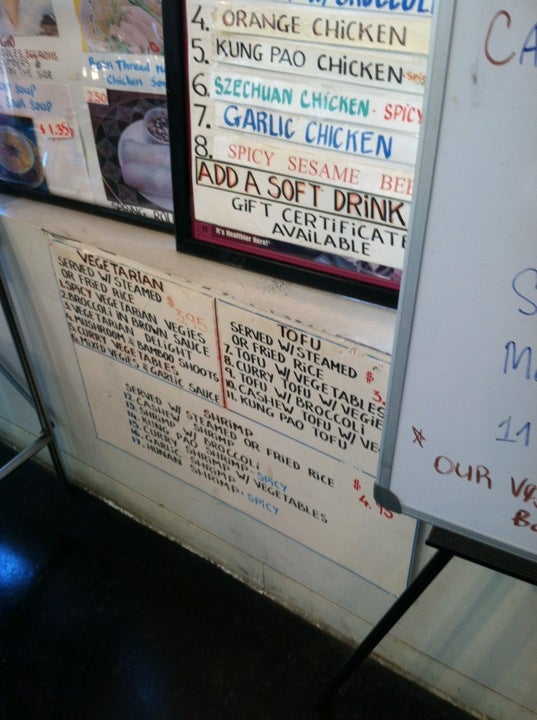 4. ORANGE CHICKEN
5. KUNG PAO CHICKEN
6. SZECHUAN CHICKEN - SPICY
7. GARLIC CHICKEN
8. SPICY SESAME BEE
ADD A SOFT DRINK
GIFT CERTIFICATE
AVAILABLE
It's Healthier Here!
ON THE SIDE
Soup
Soup
$1.35
Bean Thread
Chicken
2.50
SPRING ROL
VEGETARIAN
SERVED W/ STEAMED
OR FRIED RICE $3.95
1. SPICY VEGETARIAN VEGIES
2. BROCCOLI IN BROWN SAUCE
3. VEGETARIAN DELIGHT
4. MUSHROOM & BAMBOO SHOOTS
5. CURRY VEGETABLES
6. MIXED VEGIES & GARLIC SAUCE
TOFU
SERVED W/STEAMED
OR FRIED RICE $3.
7. TOFU W/ VEGETABLES
8. CURRY TOFU W/ VEGIE
9. TOFU W/ BROCCOLI
10. CASHEW TOFU W/ VE
11. KUNG PAO TOFU
SHRIMP
SERVED W/ STEAMED OR FRIED RICE $4.
12. CASHEW SHRIMP
SHRIMP W/ BROCCOLI
KUNG PAO SHRIMP-SPICY
GARLIC SHRIMP
SHRIMP W/ VEGETABLES
17. HUNAN SHRIMP-SPICY
CA
S
M
11
* OUR